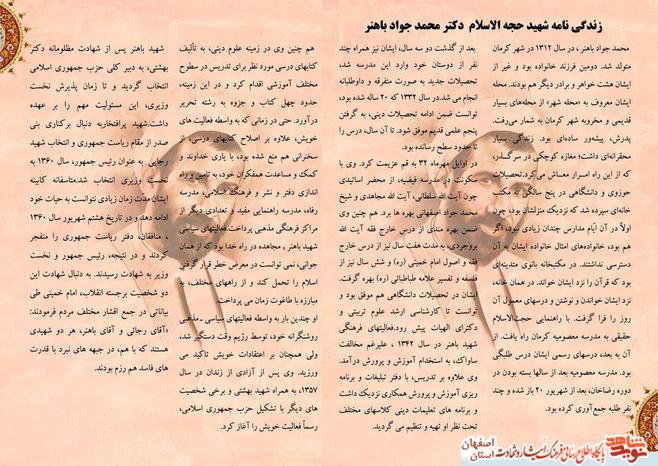 زندگی نامه شهید حجه الاسلام دکتر محمد جواد باهنر
محمد جواد باهنر، در سال ۱۳۱۲ در شهر کرمان
متولد شد. دومین فرزند خانواده بود و غیر از
ایشان هشت خواهر و برادر دیگر هم بودند.
ایشان معروف به محله شهر؛ از محله‌های بسیار
قدیمی و مخروبه شهر کرمان به شمار می‌رفت.
پدرش، پیشه‌ور ساده‌ای بود. زندگی بسیار
محقرانه‌ای داشت؛ مغازه کوچکی در سر گذر،
که از این راه امرار معاش می‌کرد. تحصیلات
حوزوی و دانشگاهی در پنج سالگی به مکتب
خانه‌ای سپرده شد که نزدیک منزلشان بود، چون
اولاً در آن ایام مدارس چندان زیادی نبود، اگر
هم بود، خانواده‌های امثال خانواده ایشان به آن
دسترسی نداشتند. در مکتبخانه بانوی متدینه‌ای
بود که قرآن را نزد ایشان خواند. در همان خانه،
نزد ایشان خواندن و نوشتن و درسهای معمول آن
روز را فرا گرفت. با راهنمایی حجت‌الاسلام
حقیقی به مدرسه معصومیه کرمان راه یافت. از
آن به بعد، درسهای رسمی ایشان درس طلبگی
بود. مدرسه معصومیه بعد از سالها بسته بودن در
دوره رضاخان، بعد از شهریور ۲۰ باز شده و چند
نفر طلبه جمع‌آوری کرده بود.
بعد از گذشت دو سه سال، ایشان نیز همراه چند
نفر از دوستان خود وارد این مدرسه شد.
تحصیلات جدید به صورت متفرقه و داوطلبانه
انجام می شد. در سال ۱۳۳۲ که ۲۰ ساله شده بود،
توانست ضمن ادامه تحصیلات دینی، به گرفتن
پنجم علمی قدیم موفق شود. تا آن سال، درس را
تا حدود سطح رسانده بود.
در اوایل مهرماه ۳۲ به قم عزیمت کرد. وی با
سکونت در مدرسه فیضیه، از محضر اساتیدی
چون آیت الله سلطانی، آیت الله مجاهدی و شیخ
محمد جواد اصفهانی بهره ها برد. هم چنین وی
ضمن بهره مندی از درس خارج فقه آیت الله
بروجردی، به مدت هفت سال نیز از درس خارج
فقه و اصول امام خمینی (ره) و شش سال نیز از
فلسفه و تفسیر علامه طباطبائی (ره) بهره گرفت.
ایشان در تحصیلات دانشگاهی هم موفق بود و
توانست تا کارشناسی ارشد علوم تربیتی و
دکترای الهیات پیش رود. فعالیتهای فرهنگی
شهید باهنر در سال ۱۳۴۲ ، علیرغم مخالفت
ساواک، به استخدام آموزش و پرورش درآمد.
وی علاوه بر تدریس، در دفتر تبلیغات و برنامه
ریزی آموزش و پرورش همکاری نزدیک داشت
و برنامه های تعلیمات دینی کلاسهای مختلف
تحت نظر او تهیه و تنظیم می گردید.
هم چنین وی در زمینه علوم دینی، به تألیف
کتابهای درسی مورد نظر برای تدریس در سطوح
مختلف آموزشی اقدام کرد و در این زمینه،
حدود چهل کتاب و جزوه به رشته تحریر
درآورد. حتی در زمانی که به واسطه فعالیت های
خویش، علاوه بر اصلاح کتابهای درسی، از
سخنرانی هم منع شده بود، با یاری خداوند و
کمک و مساعدت همفکران خود، به تأمین و راه
اندازی دفتر و نشر و فرهنگ اسلامی، مدرسه
رفاه، مدرسه راهنمایی مفید و تعدادی دیگر از
مراکز فرهنگی مذهبی پرداخت. فعالیتهای سیاسی
شهید باهنر، مجاهده در راه خدا بود که از همان
جوانی، نمی توانست در معرض خطر قرار گرفتن
اسلام را تحمل کند و از راههای مختلف، به
مبارزه با طاغوت زمان می پرداخت.
او چندین بار به واسطه فعالیتهای سیاسی ـ مذهبی
روشنگرانه خود، توسط رژیم وقت دستگیر شد،
ولی همچنان بر اعتقادات خویش تاکید می
ورزید. وی پس از آزادی از زندان در سال
۱۳۵۷، به همراه شهید بهشتی و برخی شخصیت
های دیگر با تشکیل حزب جمهوری اسلامی،
رسماً فعالیت خویش را آغاز کرد.
شهید باهنر پس از شهادت مظلومانه دکتر
بهشتی، به دبیر کلی حزب جمهوری اسلامی
انتخاب گردید و تا زمان پذیرش نخست
وزیری، این مسئولیت مهم را بر عهده
داشت. شهید پرافتخار به دنبال برکناری بنی
صدر از مقام ریاست جمهوری و انتخاب شهید
رجایی به عنوان رئیس جمهور، در سال ۱۳۶۰ به
نخست وزیری انتخاب شد. متاسفانه کابینه
ایشان مدت زمان زیادی نتوانست به حیات خود
ادامه دهد و در تاریخ هشتم شهریور سال ۱۳۶۰
، منافقان، دفتر ریاست جمهوری را منفجر
کردند و در نتیجه، رئیس جمهور و نخست
وزیر به شهادت رسیدند. به دنبال شهادت این
دو شخصیت برجسته انقلاب، امام خمینی طی
بیاناتی در جمع اقشار مختلف مردم فرمودند:
«آقای رجائی و آقای باهنر، هر دو شهیدی
هستند که با هم، در جبهه های نبرد با قدرت
های فاسد هم رزم بودند.
نوید شاهد
پایگاه اطلاع رسانی فرهنگ ایثار و شهادت
استان اصفهان